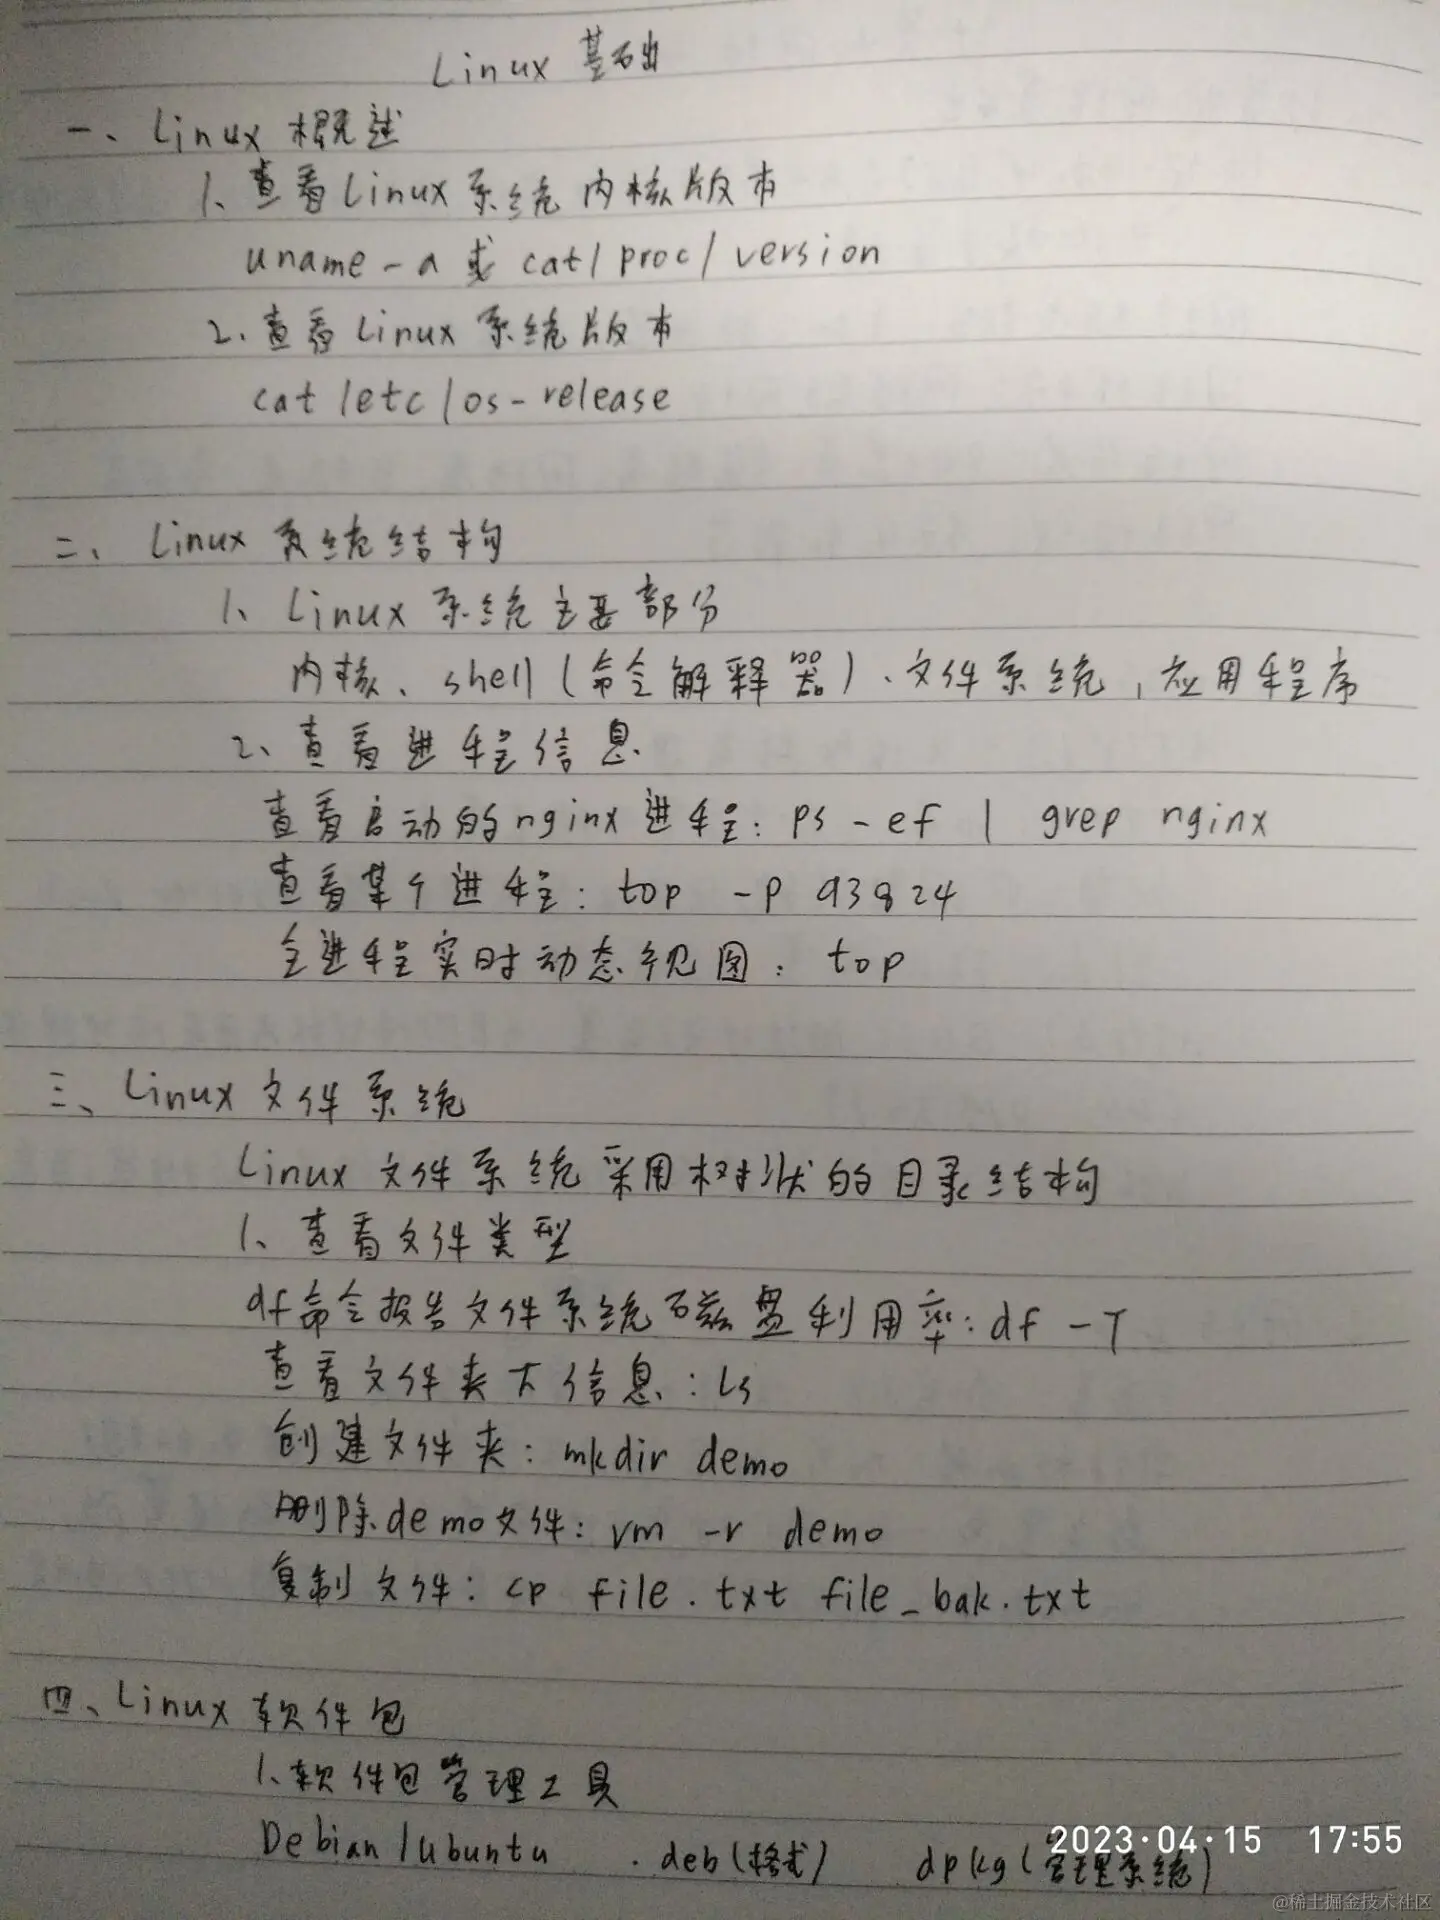 Linux 基础
一、Linux 概述
1、查看Linux系统内核版本
uname -a 或 cat/proc/version
2、查看Linux系统版本
cat /etc/os-release
二、Linux 系统结构
1、Linux 系统主要部分
内核、shell(命令解释器)、文件系统,应用程序
2、查看进程信息
查看启动的nginx进程: ps -ef | grep nginx
查看某个进程: top -p 93824
全进程实时动态视图: top
三、Linux 文件系统
Linux 文件系统采用树状的目录结构
1、查看文件类型
df命令报告文件系统磁盘利用率: df -T
查看文件夹下信息: ls
创建文件夹: mkdir demo
删除demo文件: rm -r demo
复制文件: cp file.txt file_bak.txt
四、Linux 软件包
1.软件包管理工具
Debian/Ubuntu .deb(格式) dpkg(管理系统)
2023·04·15 17:55
@稀土掘金技术社区